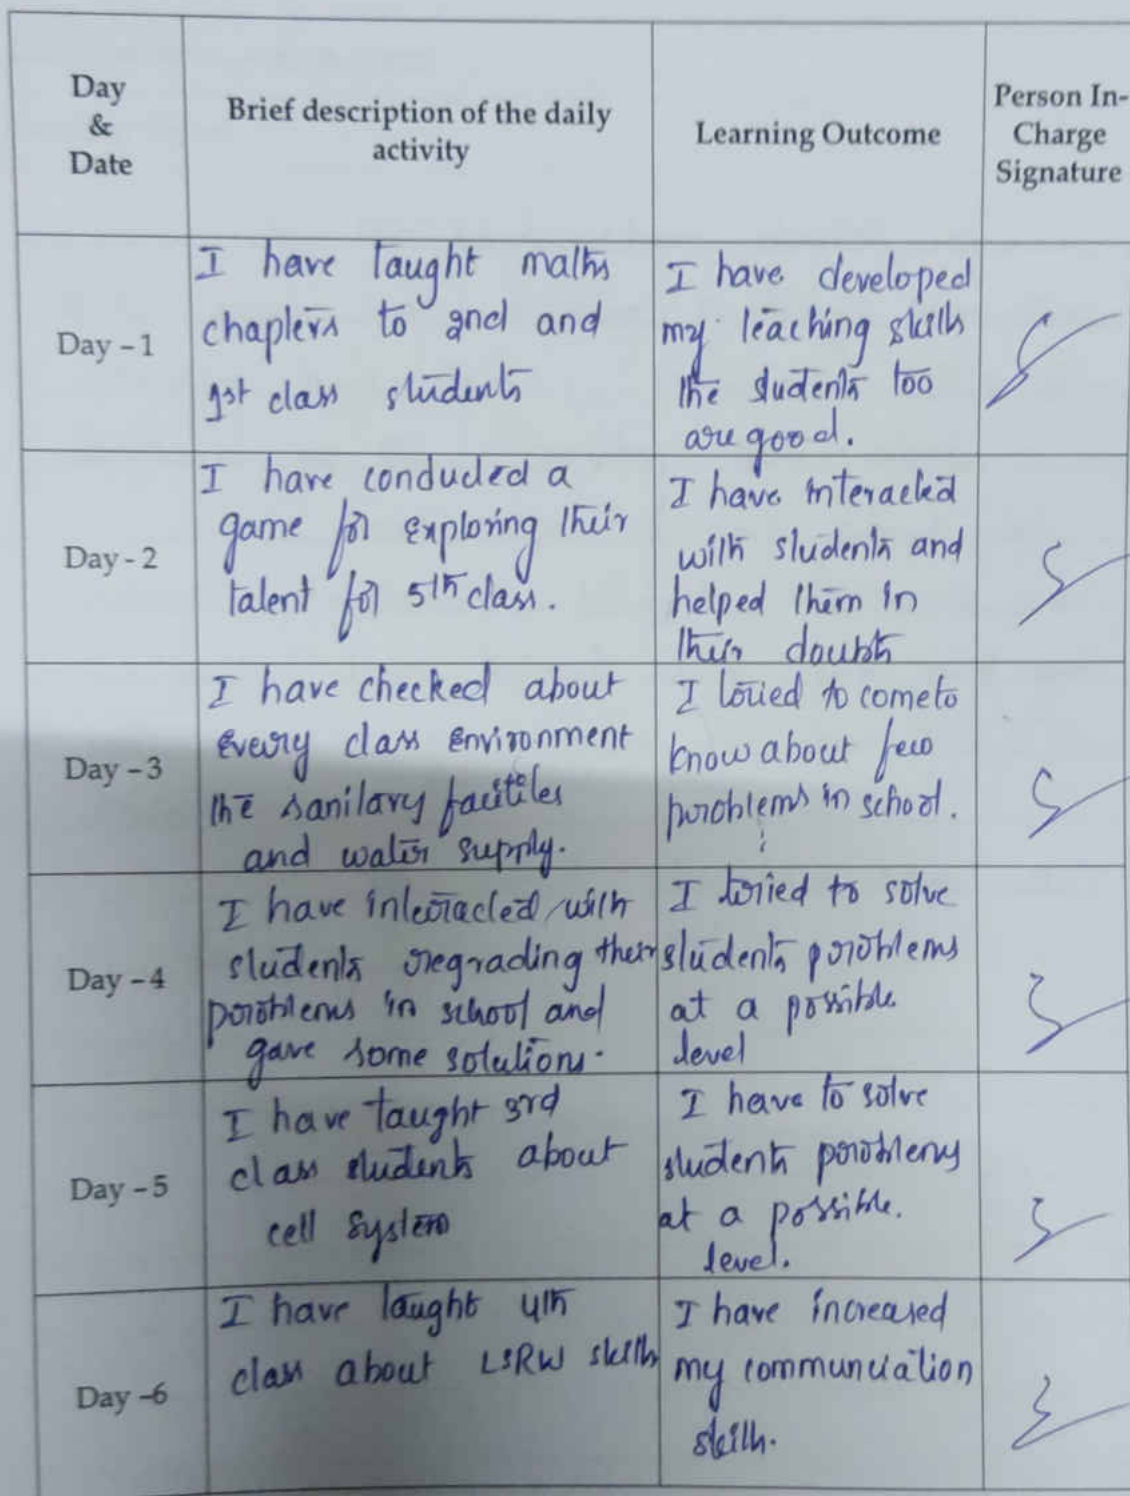 Day
&
Date
Brief description of the daily
activity
Learning Outcome
Person In-
Charge
Signature
Day - 1
I have taught maths
chapters to 2nd and
1st class students
I have developed
my teaching skills
the students too
are good.
Day - 2
I have conducted a
game for exploring their
talent for 5th class.
I have interacted
with students and
helped them in
their doubts
Day - 3
I have checked about
every class environment
the sanitary facitiles
and water supply.
I tried to come to
know about few
problems in school.
Day - 4
I have interacted with
students regrading their
problems in school and
gave some solutions.
I tried to solve
students problems
at a possible
level
Day - 5
I have taught 3rd
class students about
cell system
I have to solve
students problems
at a possible.
level.
Day -6
I have taught 4th
class about LSRW skills
I have increased
my communciation
skills.